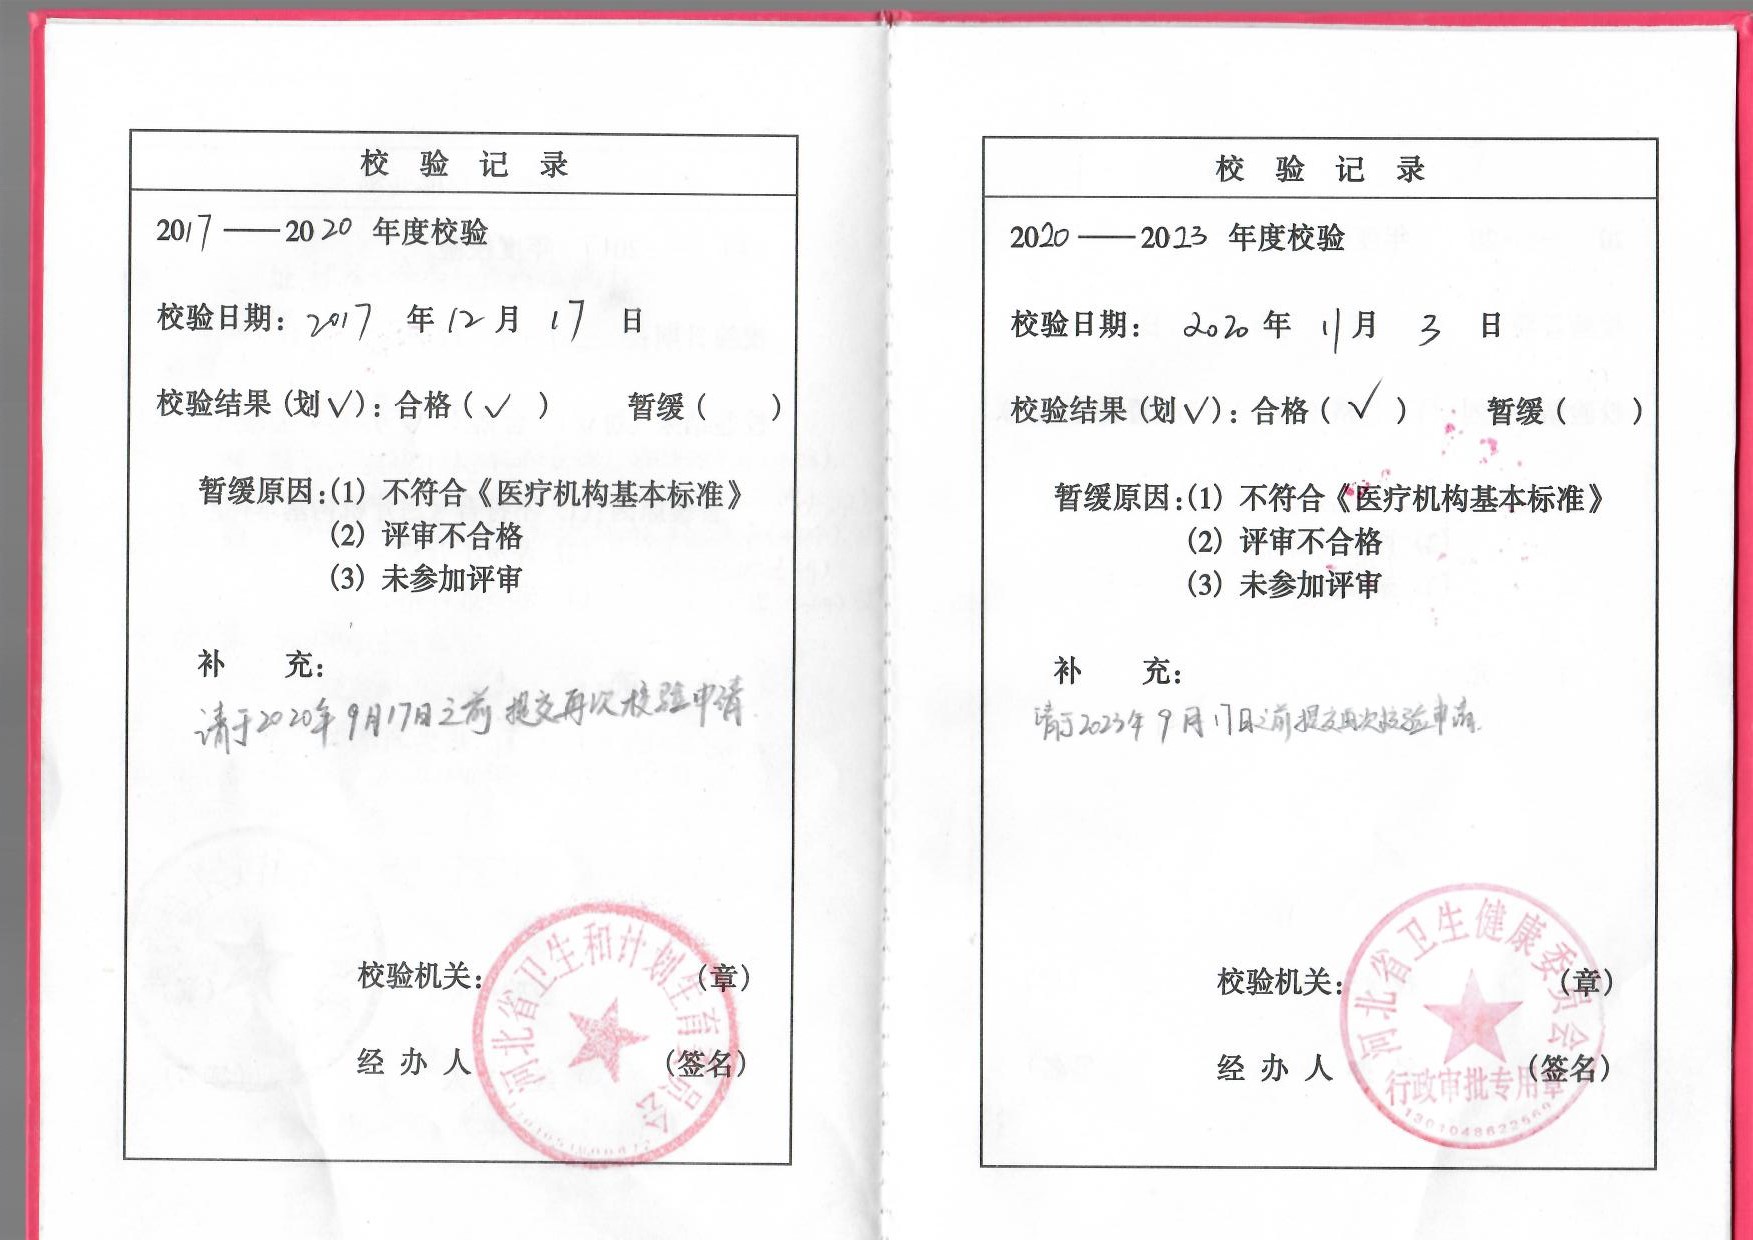 校验记录
2017——2020 年度校验
校验日期：2017 年 12 月 17 日
校验结果（划√）：合格（√）　暂缓（　）
暂缓原因：(1) 不符合《医疗机构基本标准》
(2) 评审不合格
(3) 未参加评审
补　充：
请于2020年9月17日之前提交再次校验申请
校验机关：　（章）
经 办 人　（签名）
河北省卫生和计划生育委员会
校验记录
2020——2023 年度校验
校验日期：2020 年 11 月 3 日
校验结果（划√）：合格（√）　暂缓（　）
暂缓原因：(1) 不符合《医疗机构基本标准》
(2) 评审不合格
(3) 未参加评审
补　充：
请于2023年9月17日之前提交再次校验申请.
校验机关：　（章）
经 办 人　（签名）
河北省卫生健康委员会
行政审批专用章